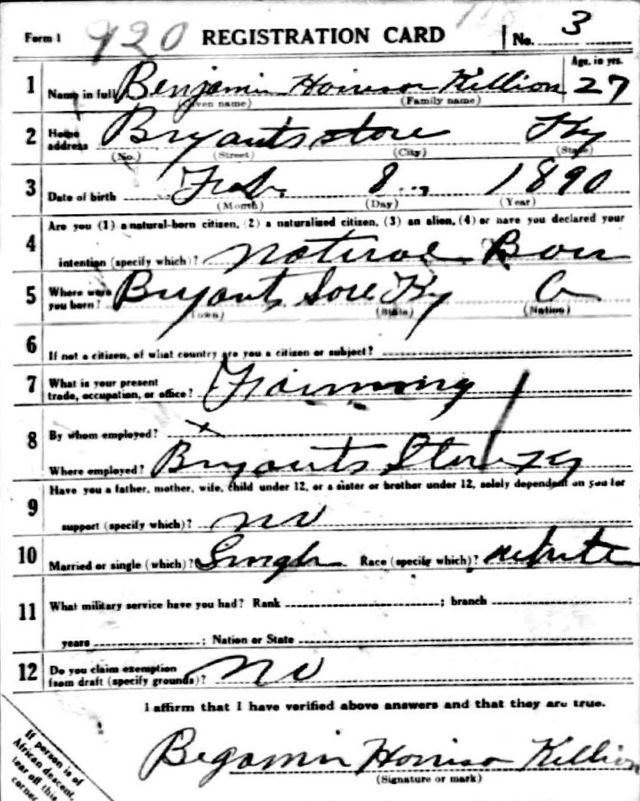 Form 1 920 REGISTRATION CARD No. 3
1 Name in full Benjamin Horrison Killion Age, in yrs. 27
(Given name) (Family name)
2 Home address Bryants store Ky
(No.) (Street) (City) (State)
3 Date of birth Feb. 8 1890
(Month) (Day) (Year)
4 Are you (1) a natural-born citizen, (2) a naturalized citizen, (3) an alien, (4) or have you declared your
intention (specify which)? Natural Born
5 Where were you born? Bryants Sore Ky
(Town) (State) (Nation)
6 If not a citizen, of what country are you a citizen or subject?
7 What is your present trade, occupation, or office? Fairming
8 By whom employed? x
Where employed? Bryants Store Ky
9 Have you a father, mother, wife, child under 12, or a sister or brother under 12, solely dependent on you for
support (specify which)? no
10 Married or single (which)? Single Race (specify which)? white
11 What military service have you had? Rank ; branch ;
years ; Nation or State
12 Do you claim exemption from draft (specify grounds)? no
I affirm that I have verified above answers and that they are true.
Begamin Horriso Killion
(Signature or mark)
If person is of
African descent,
tear off this
corner